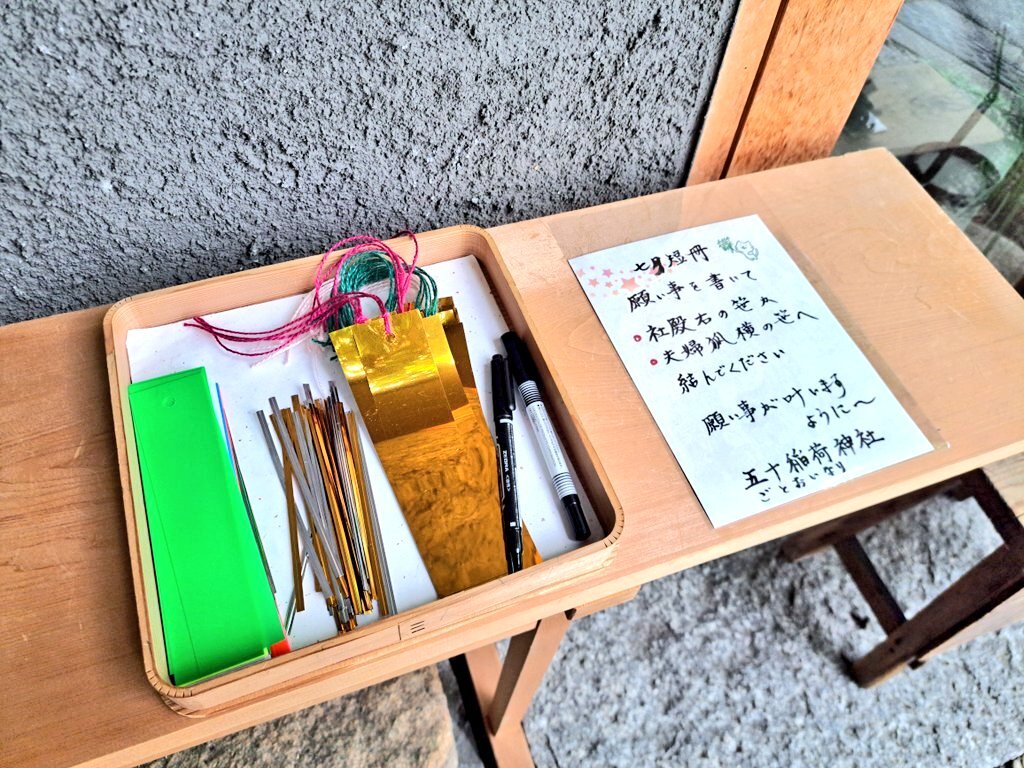 七月短冊
願い事を書いて
社殿右の笹か
夫婦狐横の笹へ
結んでください
願い事が叶います
ように〜
五十稲荷神社
ごとおいなり
三
ZEBRA